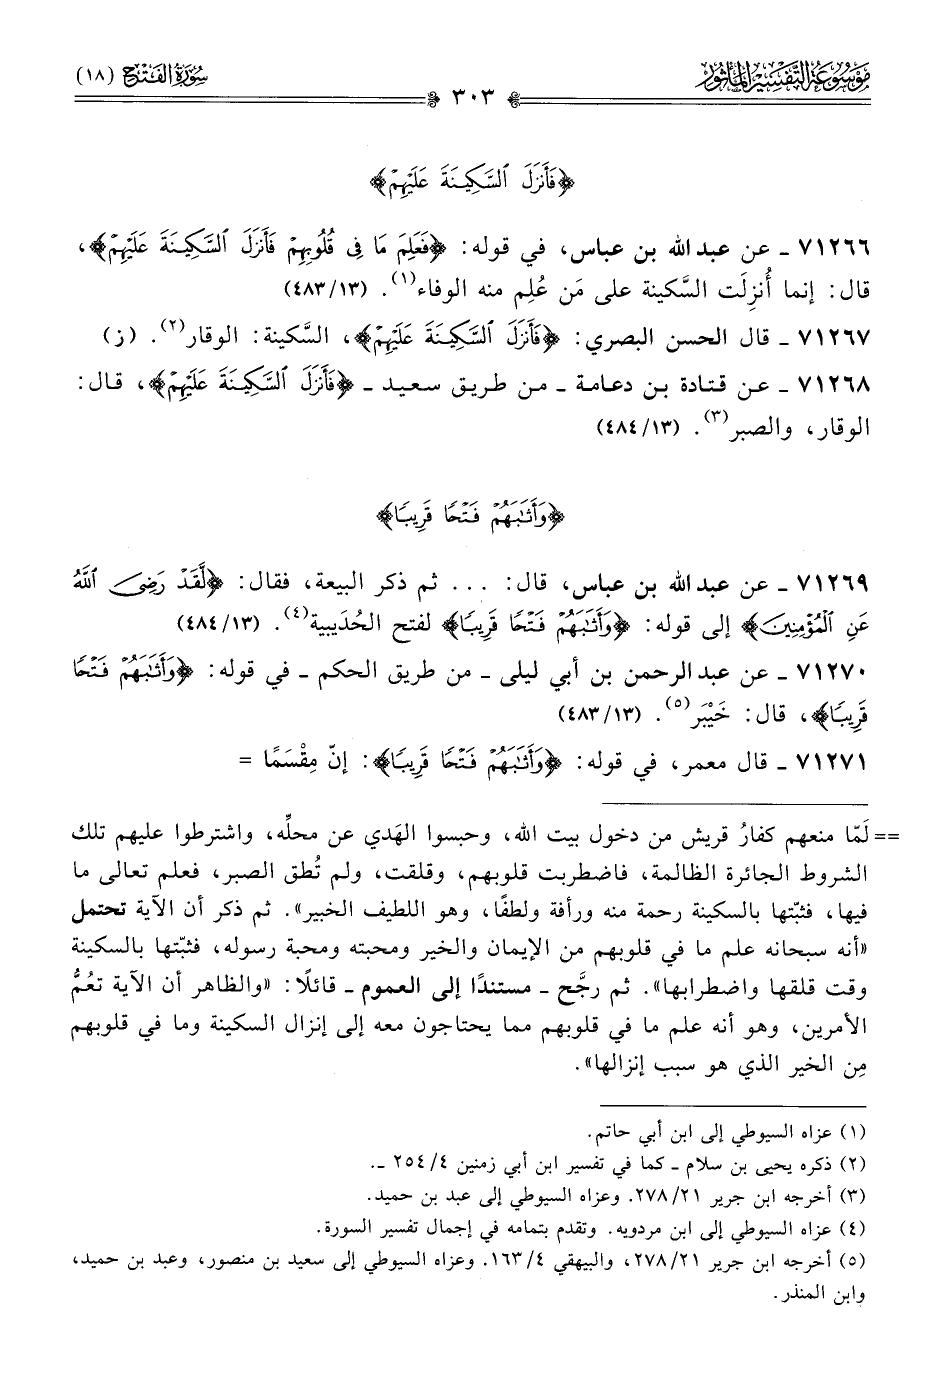 موسوعة التفسير المأثور
سورة الفتح (١٨)
٣٠٣
﴿فَأَنزَلَ ٱلسَّكِينَةَ عَلَيْهِمْ﴾
٧١٢٦٦ ـ عن عبد الله بن عباس، في قوله: ﴿فَعَلِمَ مَا فِى قُلُوبِهِمْ فَأَنزَلَ ٱلسَّكِينَةَ عَلَيْهِمْ﴾،
قال: إنما أُنزِلَت السَّكينة على مَن عُلِم منه الوفاء(١). (٤٨٣/١٣)
٧١٢٦٧ ـ قال الحسن البصري: ﴿فَأَنزَلَ ٱلسَّكِينَةَ عَلَيْهِمْ﴾، السَّكينة: الوقار(٢). (ز)
٧١٢٦٨ ـ عن قتادة بن دعامة ـ من طريق سعيد ـ ﴿فَأَنزَلَ ٱلسَّكِينَةَ عَلَيْهِمْ﴾، قال:
الوقار، والصبر(٣). (٤٨٤/١٣)
﴿وَأَثَٰبَهُمْ فَتْحًا قَرِيبًا﴾
٧١٢٦٩ ـ عن عبد الله بن عباس، قال: ... ثم ذكر البيعة، فقال: ﴿لَّقَدْ رَضِىَ ٱللَّهُ
عَنِ ٱلْمُؤْمِنِينَ﴾ إلى قوله: ﴿وَأَثَٰبَهُمْ فَتْحًا قَرِيبًا﴾ لفتح الحُدَيبية(٤). (٤٨٤/١٣)
٧١٢٧٠ ـ عن عبد الرحمن بن أبي ليلى ـ من طريق الحكم ـ في قوله: ﴿وَأَثَٰبَهُمْ فَتْحًا
قَرِيبًا﴾، قال: خَيْبَر(٥). (٤٨٣/١٣)
٧١٢٧١ ـ قال معمر، في قوله: ﴿وَأَثَٰبَهُمْ فَتْحًا قَرِيبًا﴾: إنّ مِقْسَمًا =
== لَمّا منعهم كفارُ قريش من دخول بيت الله، وحبسوا الهَدي عن محلِّه، واشترطوا عليهم تلك
الشروط الجائرة الظالمة، فاضطربت قلوبهم، وقلقت، ولم تُطق الصبر، فعلم تعالى ما
فيها، فثبّتها بالسكينة رحمة منه ورأفة ولطفًا، وهو اللطيف الخبير». ثم ذكر أن الآية تحتمل
«أنه سبحانه علم ما في قلوبهم من الإيمان والخير ومحبته ومحبة رسوله، فثبّتها بالسكينة
وقت قلقها واضطرابها». ثم رجَّح ـ مستندًا إلى العموم ـ قائلًا: «والظاهر أن الآية تعُمُّ
الأمرين، وهو أنه علم ما في قلوبهم مما يحتاجون معه إلى إنزال السكينة وما في قلوبهم
مِن الخير الذي هو سبب إنزالها».
(١) عزاه السيوطي إلى ابن أبي حاتم.
(٢) ذكره يحيى بن سلام ـ كما في تفسير ابن أبي زمنين ٢٥٤/٤ ـ.
(٣) أخرجه ابن جرير ٢٧٨/٢١. وعزاه السيوطي إلى عبد بن حميد.
(٤) عزاه السيوطي إلى ابن مردويه. وتقدم بتمامه في إجمال تفسير السورة.
(٥) أخرجه ابن جرير ٢٧٨/٢١، والبيهقي ١٦٣/٤. وعزاه السيوطي إلى سعيد بن منصور، وعبد بن حميد،
وابن المنذر.